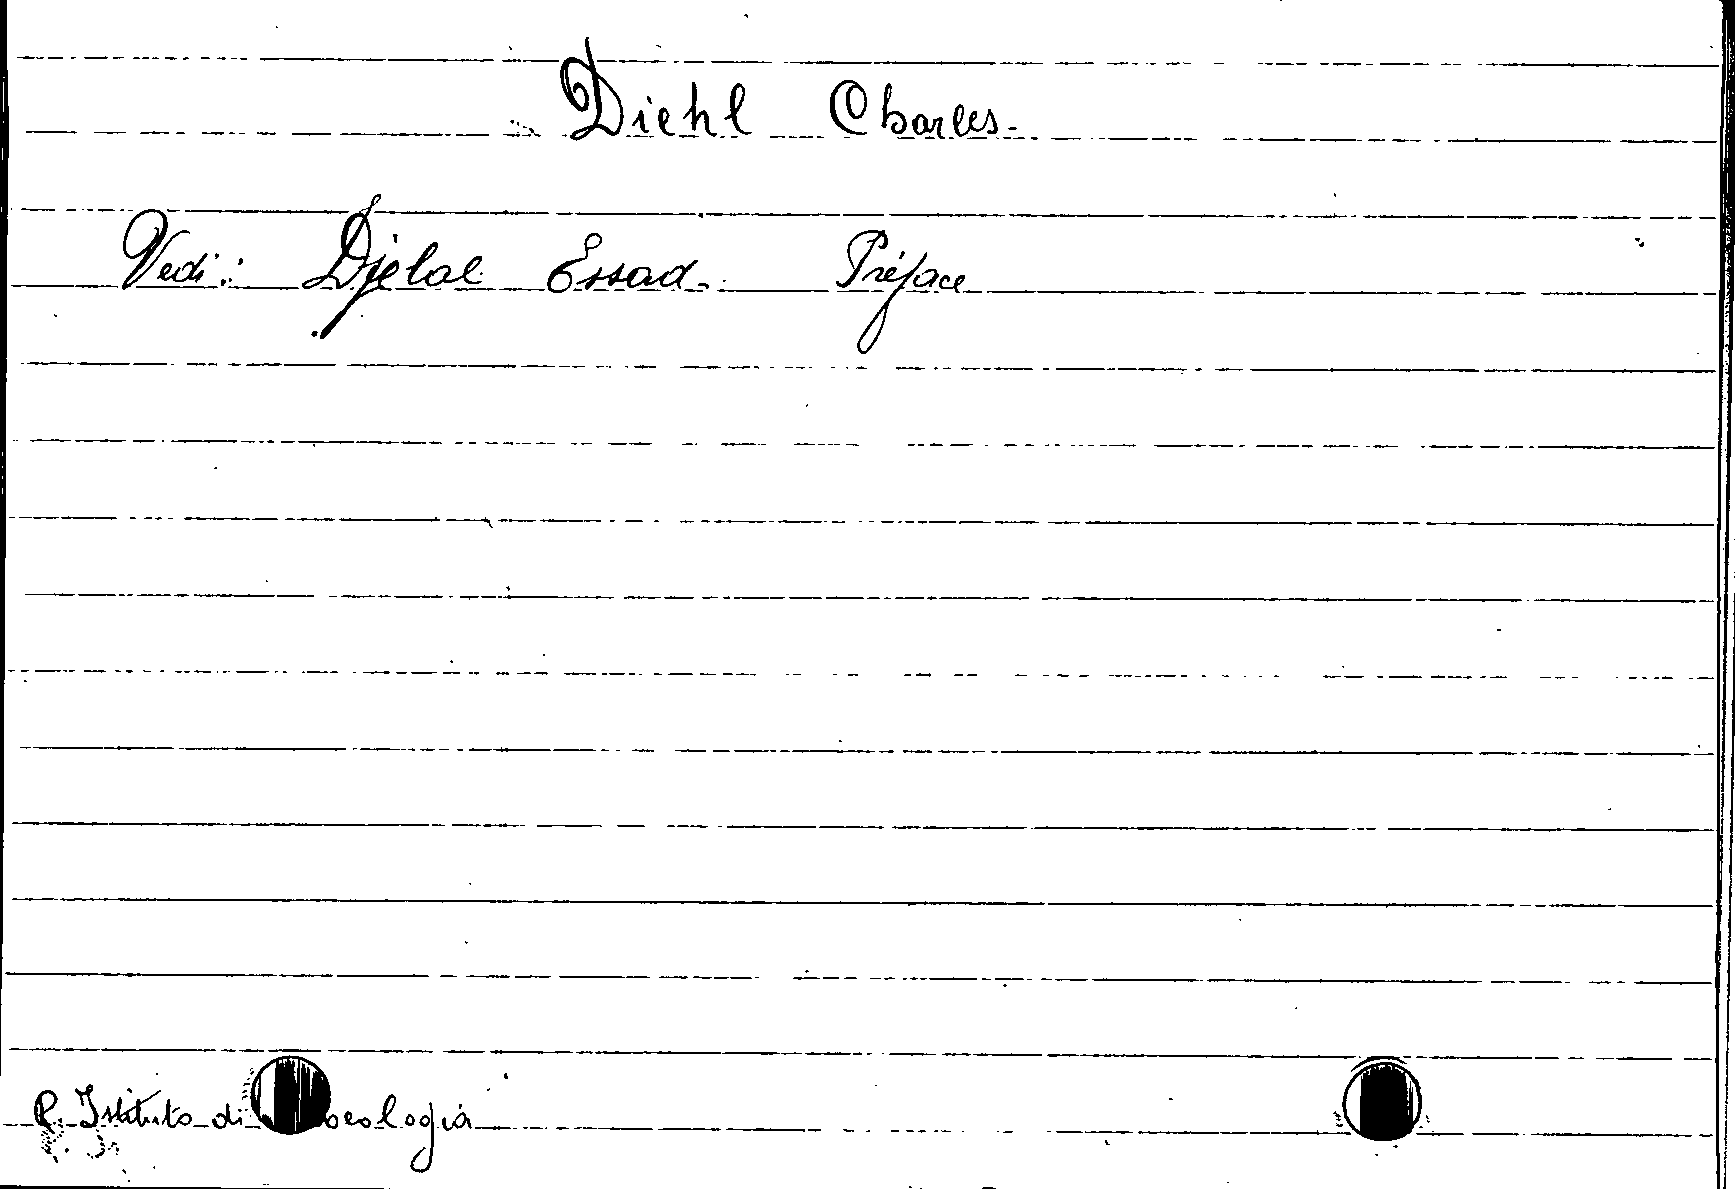 Diehl Charles.
Vedi: Djelal Essad. Préface
R. Istituto di